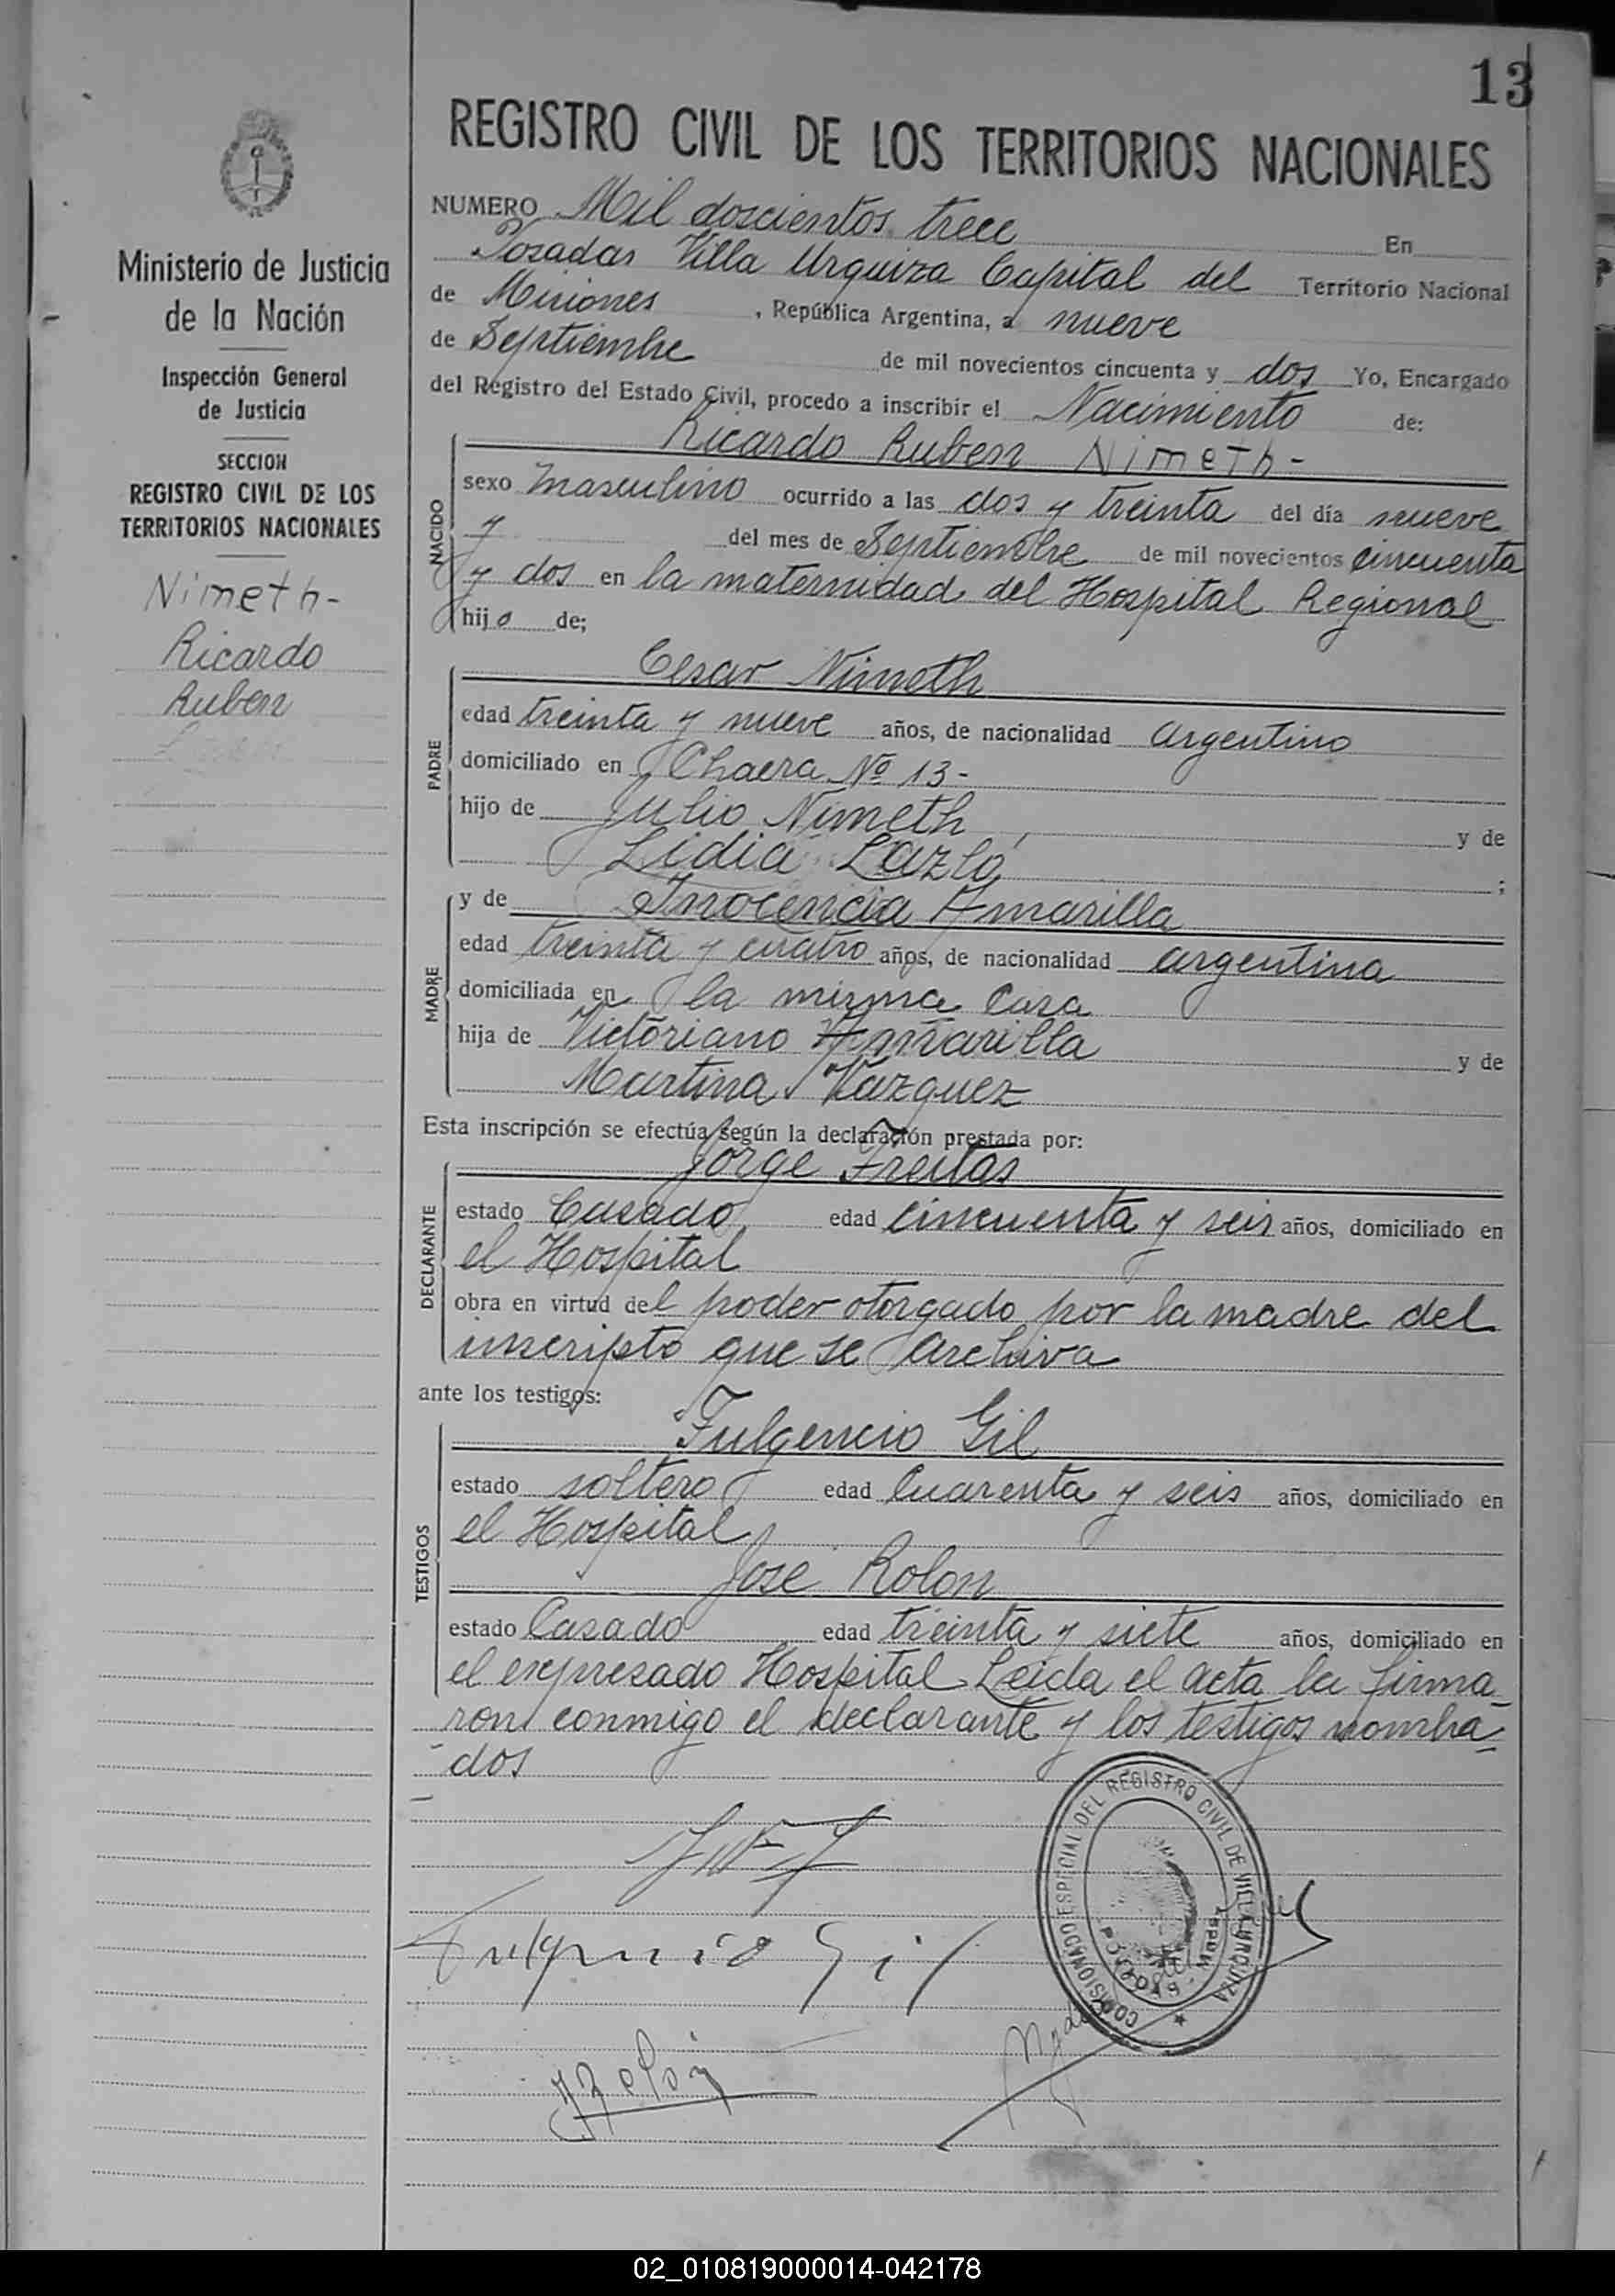 13
REGISTRO CIVIL DE LOS TERRITORIOS NACIONALES
Ministerio de Justicia
de la Nación
Inspección General
de Justicia
SECCION
REGISTRO CIVIL DE LOS
TERRITORIOS NACIONALES
Nimeth-
Ricardo
Ruben
NUMERO Mil doscientos trece En
Posadas Villa Urquiza Capital del Territorio Nacional
de Misiones, República Argentina, a nueve
de Septiembre de mil novecientos cincuenta y dos Yo, Encargado
del Registro del Estado Civil, procedo a inscribir el Nacimiento de:
Ricardo Ruben Nimeth-
NACIDO
sexo masculino ocurrido a las dos y treinta del día nueve
y del mes de Septiembre de mil novecientos cincuenta
y dos en la maternidad del Hospital Regional
hijo de;
Cesar Nimeth
PADRE
edad treinta y nueve años, de nacionalidad argentino
domiciliado en Chacra Nº 13-
hijo de Julio Nimeth y de
Lidia Lazló;
MADRE
y de Inocencia Amarilla
edad treinta y cuatro años, de nacionalidad argentina
domiciliada en la misma casa
hija de Victoriano Amarilla y de
Martina Vazquez
Esta inscripción se efectúa según la declaración prestada por:
Jorge Freitas
DECLARANTE
estado Casado edad cincuenta y seis años, domiciliado en
el Hospital
obra en virtud del poder otorgado por la madre del
inscripto que se archiva
ante los testigos:
Fulgencio Gil
TESTIGOS
estado soltero edad cuarenta y seis años, domiciliado en
el Hospital
José Rolon
estado Casado edad treinta y siete años, domiciliado en
el expresado Hospital Leida el acta la firma-
ron conmigo el declarante y los testigos nombra-
dos
COMISIONADO ESPECIAL DEL REGISTRO CIVIL DE VILLA URQUIZA
POSADAS
Fulgencio Gil
JRolón
02_010819000014-042178